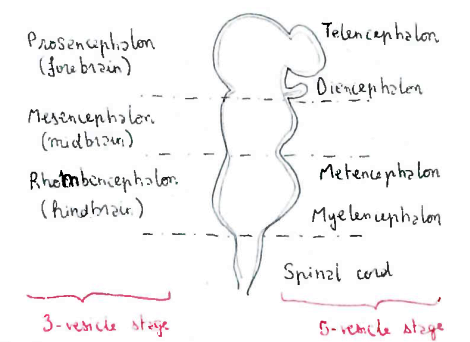 Prosencephalon
(forebrain)
Mesencephalon
(midbrain)
Rhombencephalon
(hindbrain)
3-vesicle stage
Telencephalon
Diencephalon
Metencephalon
Myelencephalon
Spinal cord
5-vesicle stage